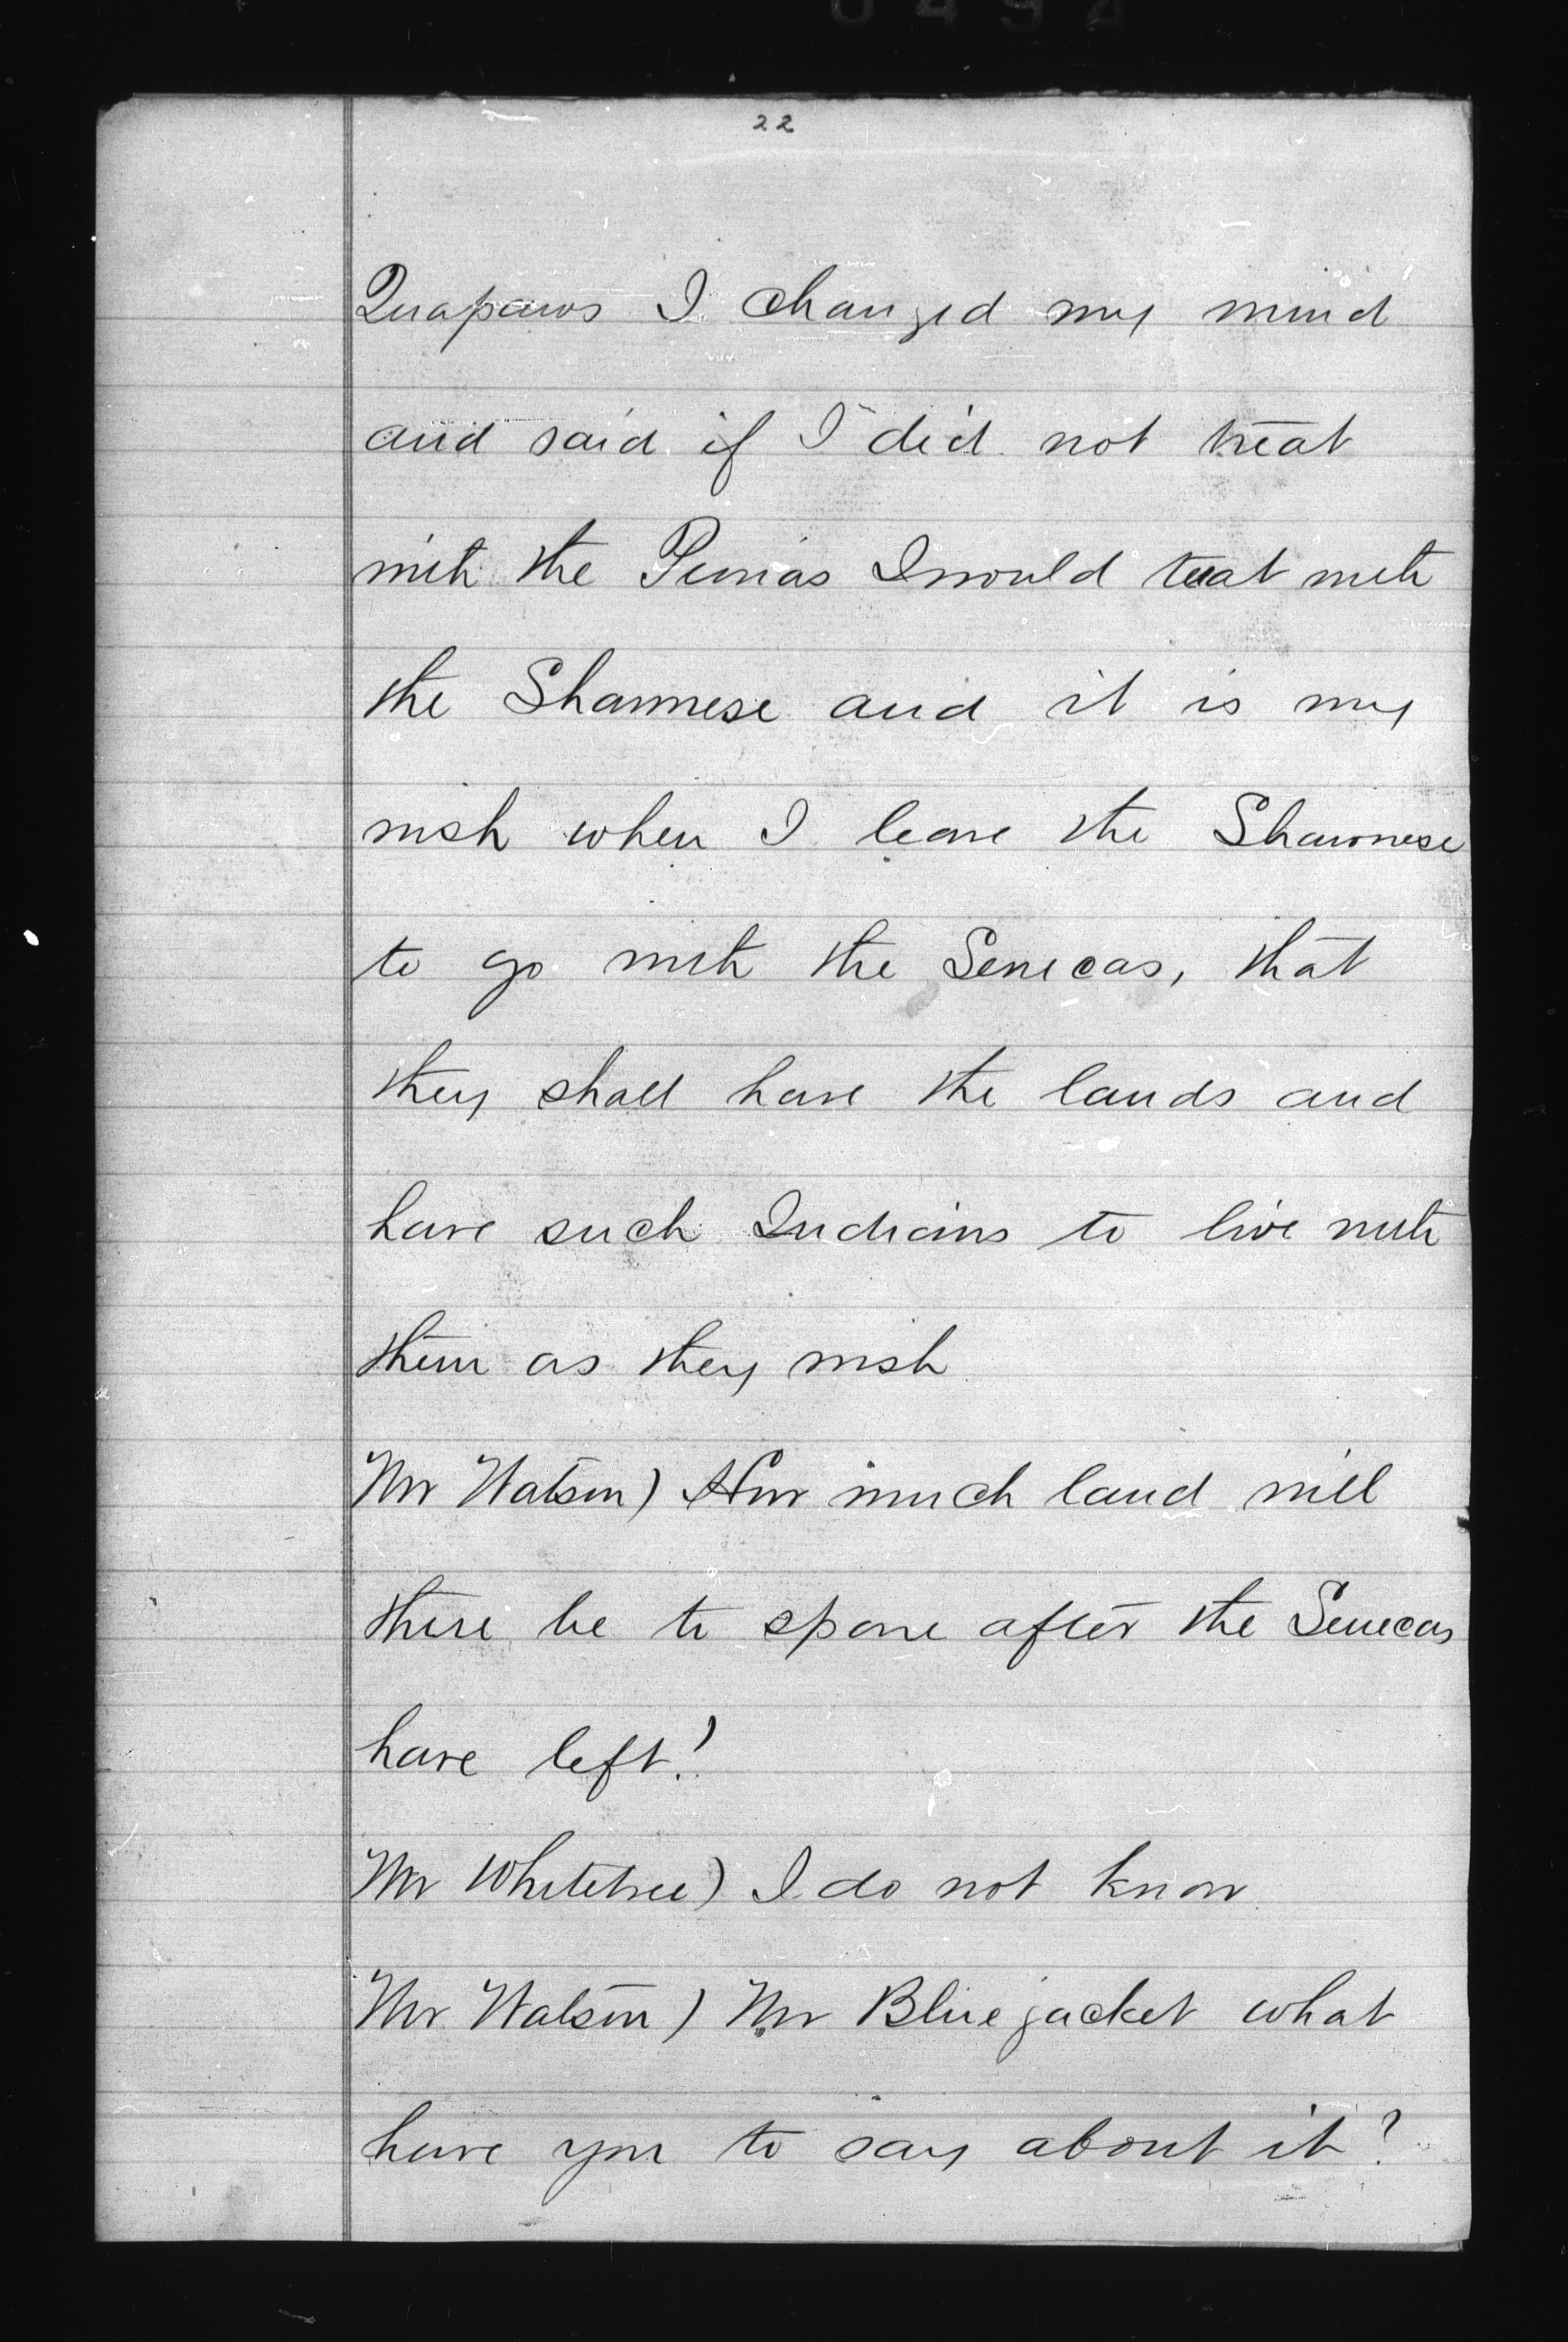 22
Quapaws I changed my mind
and said if I did not treat
with the Peorias I would treat with
the Shawnese and it is my
wish when I leave the Shawnese
to go with the Senecas, that
they shall have the lands and
have such Indians to live with
them as they wish
Mr Watson) How much land will
there be to spare after the Senecas
have left?
Mr Whitetree) I do not know
Mr Watson) Mr Bluejacket what
have you to say about it?